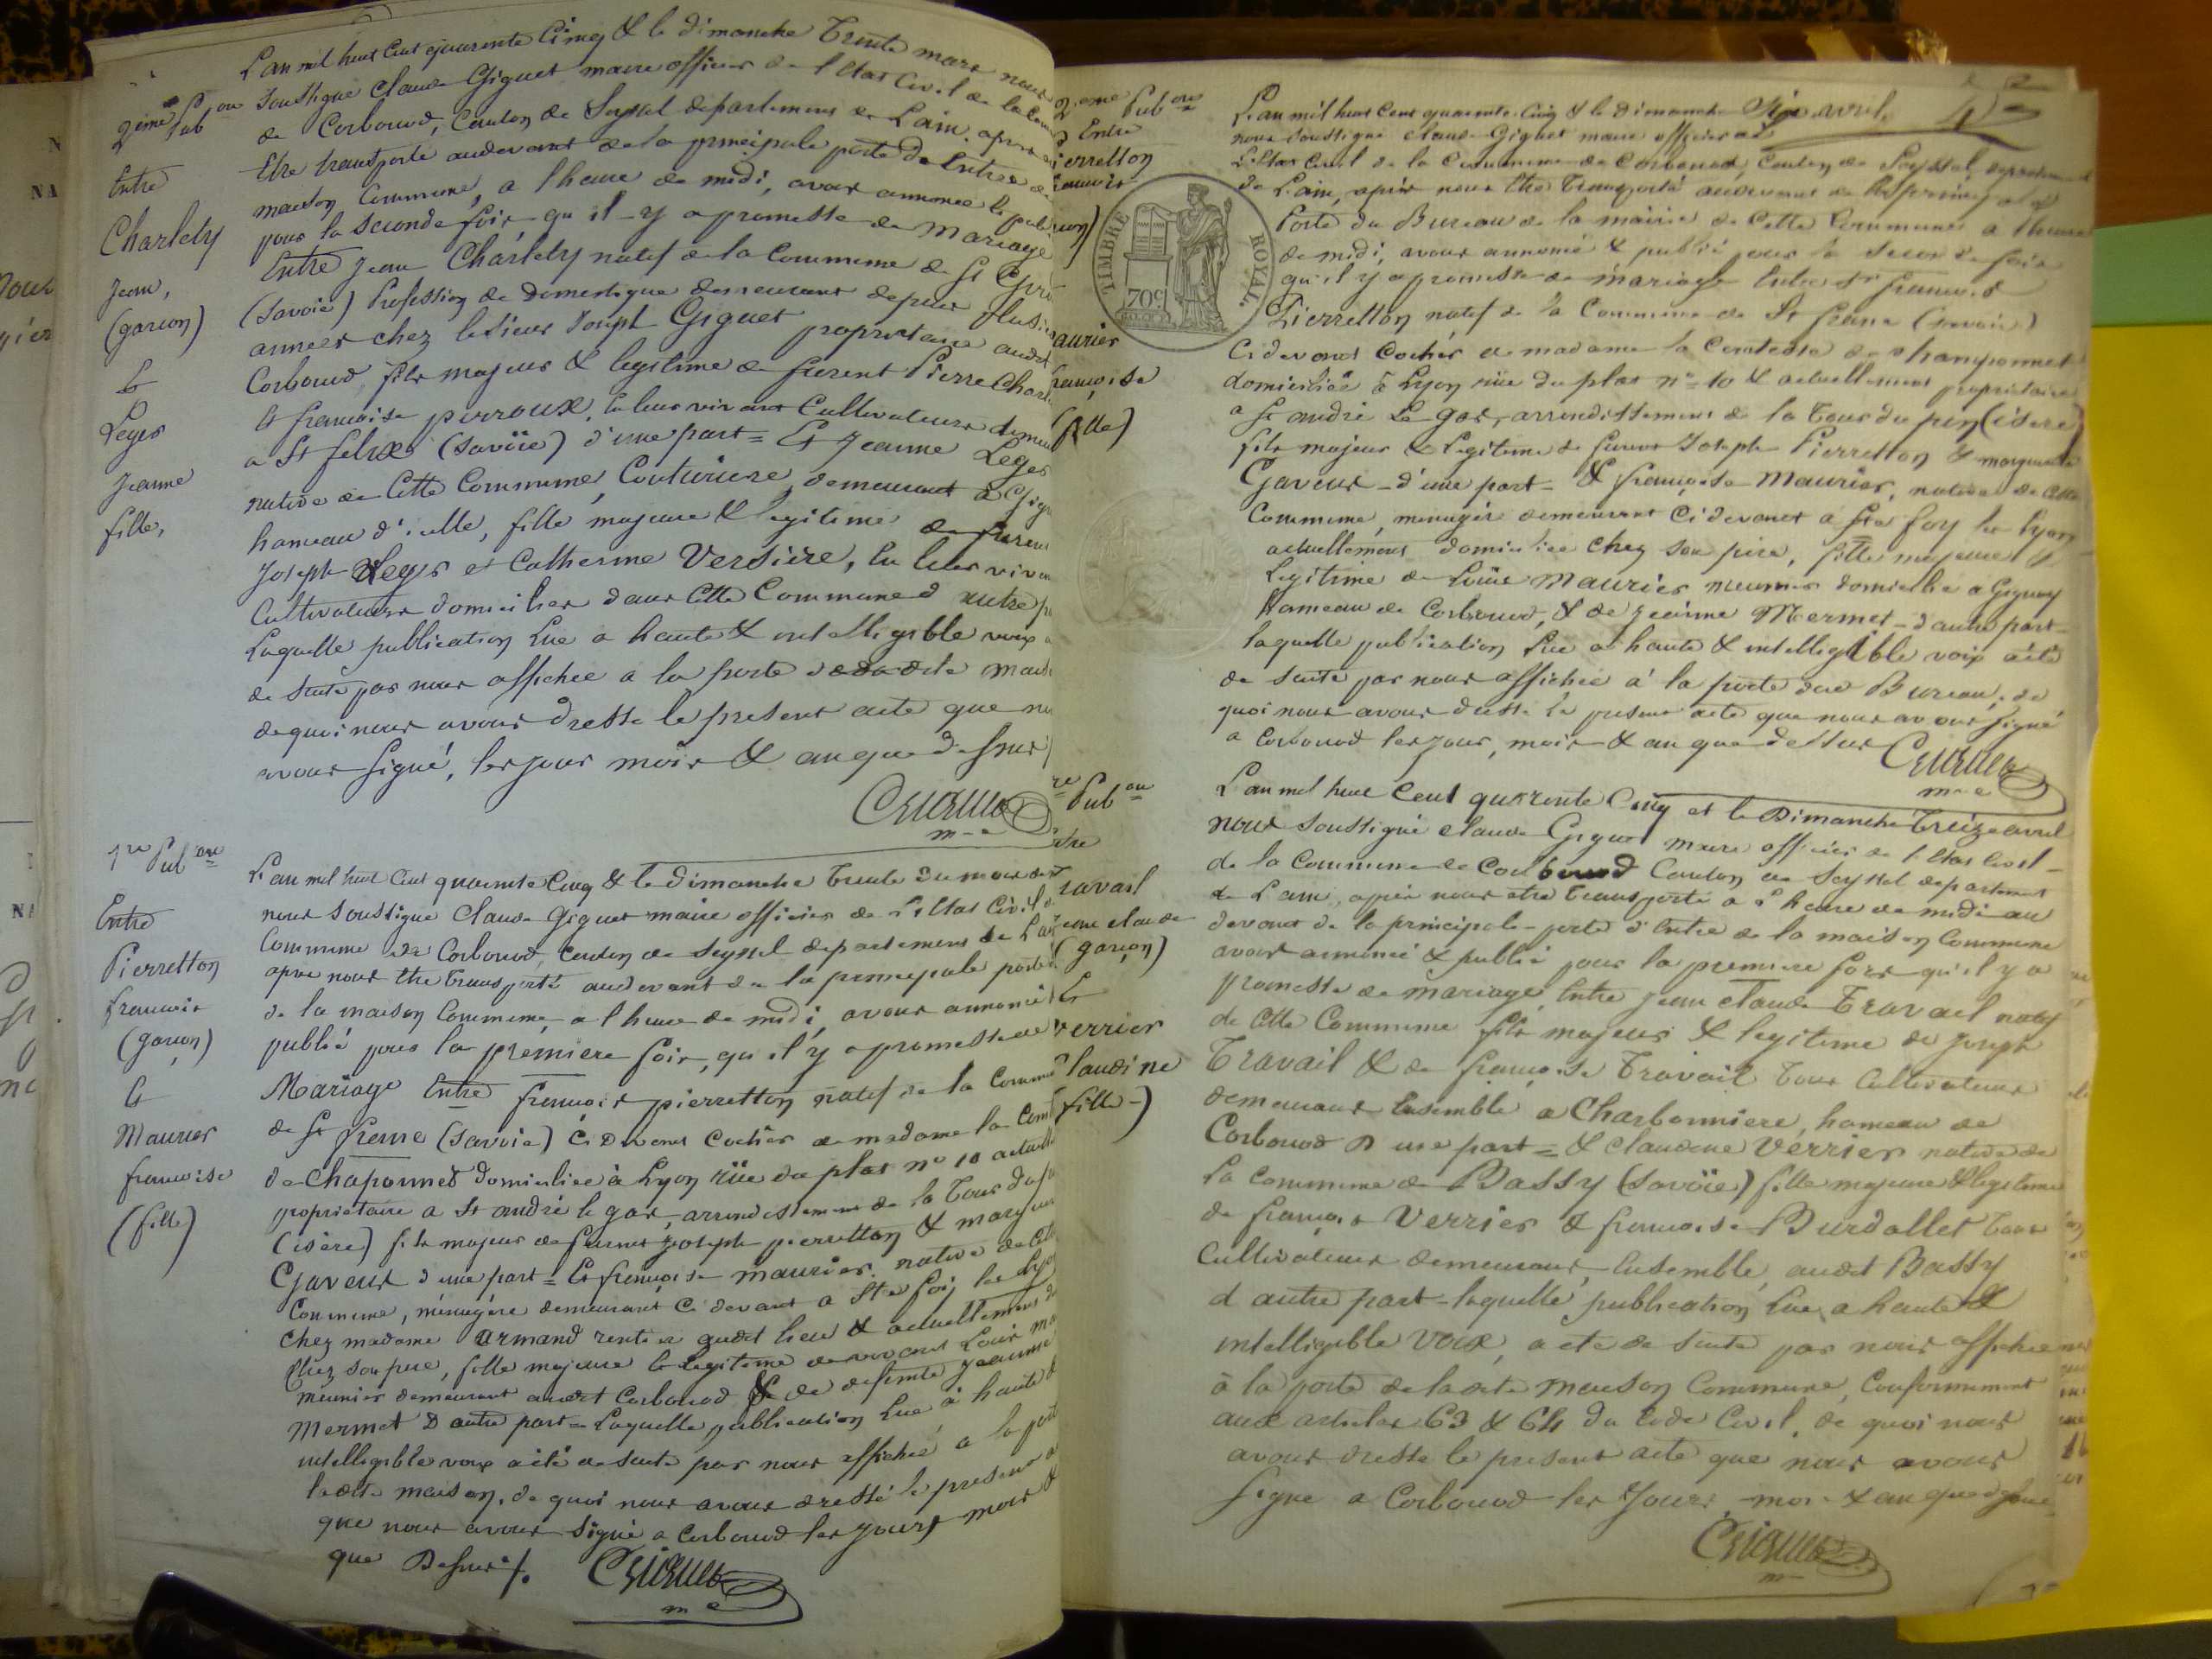 2eme Pub on
Entre
Charlety
Jean,
(garcon)
Et
Leges
Jeanne
fille,
L'an mil huit cent quarante cinq & le dimanche trente mars nous
soussigné Claude Giguet maire officier de l'Etat Civil de la
de Corbonod, Canton de Seyssel département de L'ain, apres
Etre transporté audevant de la principale porte d'Entrée de
maison Commune, a l'heure de midi, avons annoncé & publ
pour la seconde fois, qu'il y a promesse de Mariage
Entre Jean Charlety natif de la Commune de St
(Savoie) Profession de domestique demeurant depuis plusieu
années chez le sieur Joseph Giguet propriétaire audit
Corbonod, fils majeur & legitime de furent Pierre Charl
et francoise perroux, en leur vivant Cultivateurs demeu
a St felix (Savoïe) d'une part = Et Jeanne Leges
native de Cette Commune, Couturiere, demeurant a Gign
hameau d'icelle, fille majeure & legitime de furent
Joseph Leges et Catherine Versiere, en leur viva
Cultivateurs domiciliés dans Cette Commune d'autre p
Laquelle publication Lue a haute & intelligible voix a
de suite par nous affichée a la porte de la dite mais
de quoi nous avons dressé le present acte que no
avons signé, les jour mois & an que dessus
Giguet
m e
1re Pub on
Entre
Pierretton
francois
(garcon)
Et
Maurier
francoise
(fille)
L'an mil huit Cent quarante Cinq & le dimanche trente du mois de
nous soussigné Claude Giguet maire officier de L'Etat Civil d
Commune de Corbonod, Canton de Seyssel departement de L'ai
apres nous Etre transporté audevant de la principale porte
de la maison Commune, a l'heure de midi, avons annoncé
publié pour la premiere fois, qu'il y a promesse de
Mariage Entre francois pierretton natif de la Commu
de St frene (Savoie) Ci Devant Cocher de madame la Com
de Chaponnet domiciliée à Lyon rüe du plat n° 10 actuell
proprietaire a St andré le gas, arrondissement de la Tour du
(isère) fils majeur de furent Joseph pierretton & margue
Gaveur d'une part = Et francoise maurier, native de Cett
Commune, ménagère demeurant Ci devant a Ste foÿ les Lyon
Chez madame armand rentiere audit lieu & actuellement
Chez son pere, fille majeure & legitime de vivant Louis M
meunier demeurant audit Corbonod & de defunte Jeanne
Mermet D'autre part = Laquelle publication Lue à haute &
intelligible voix a été de suite par nous affichée a la porte
ladite maison, de quoi nous avons dressé le present a
que nous avons signé a Corbonod les jour, mois &
que Dessus ./.
Giguet
m e
2eme Pub on
Entre
ierretton
rancois
con)
aurier
rancoise
(fille)
TIMBRE ROYAL.
70c
L'an mil huit Cent quarante Cinq & le dimanche Six avril,
nous soussigné claude Giguet maire officier de
L'Etat Civil de la Commune de Corbonod, Canton de Seyssel, departement
de L'ain, après nous Etre transporté audevant de la principale
Porte du Bureau de la mairie de Cette Commune a l'heure
de midi, avons annoncé & publié pour la seconde fois
qu'il y a promesse de mariage Entre Sr francois
Pierretton natif de la Commune de St frene (Savoie)
Ci devant Cocher de madame la Comtesse de Chaponnet
domiciliée à Lyon rüe du plat n° 10 & actuellement propriétaire
a St andré Le gas, arrondissement de la Tour du pin (isère)
fils majeur & legitime de furent Joseph Pierretton & marguerite
Gaveur - d'une part = & francoise Maurier, native de Cette
Commune, menagére demeurant Ci devant a Ste foy les Lyon
actuellement domiciliée chez son père, fille majeure &
Legitime de Louis Maurier meunier domicilié a Gignez
hameau de Corbonod, & de Jeanne Mermet - d'autre part -
laquelle publication Lue a haute & intelligible voix a été
de suite par nous affichée à la porte dud. Bureau, de
quoi nous avons dressé le present acte que nous avons signé
a Corbonod les jour, mois & an que dessus
Giguet
m e
re Pub on
ntre
ravail
ean claude
(garcon)
Et
verrier
laudine
fille -)
L'an mil huit Cent quarante Cinq et le Dimanche treize avril
nous soussigné claude Giguet maire officier de l'Etat Civil -
de la Commune de Corbonod Canton de Seyssel departement
de L'ain, après nous etre transporté a l'heure de midi au
devant de la principale porte d'Entrée de la maison Commune
avons annoncé & publié pour la premiere fois qu'il y a
promesse de mariage, Entre Jean claude Travail natif
de Cette Commune fils majeur & legitime de Joseph
Travail & de francoise Travail tous Cultivateurs
demeurant Ensemble a Charbonniere, hameau de
Corbonod D'une part = & claudine Verrier native de
La Commune de Bassy (Savoïe) fille majeure & legitime
de francois Verrier & francoise Burdallet tous
Cultivateurs demeurant Ensemble, audit Bassy
d'autre part - laquelle publication Lue a haute &
intelligible voix, a eté de suite par nous affichée
à la porte de la dite maison Commune, Conformement
aux articles 63 & 64 du Code Civil, de quoi nous
avons dressé le present acte que nous avons
signé a Corbonod les jour, mois & an que dessus
Giguet
m